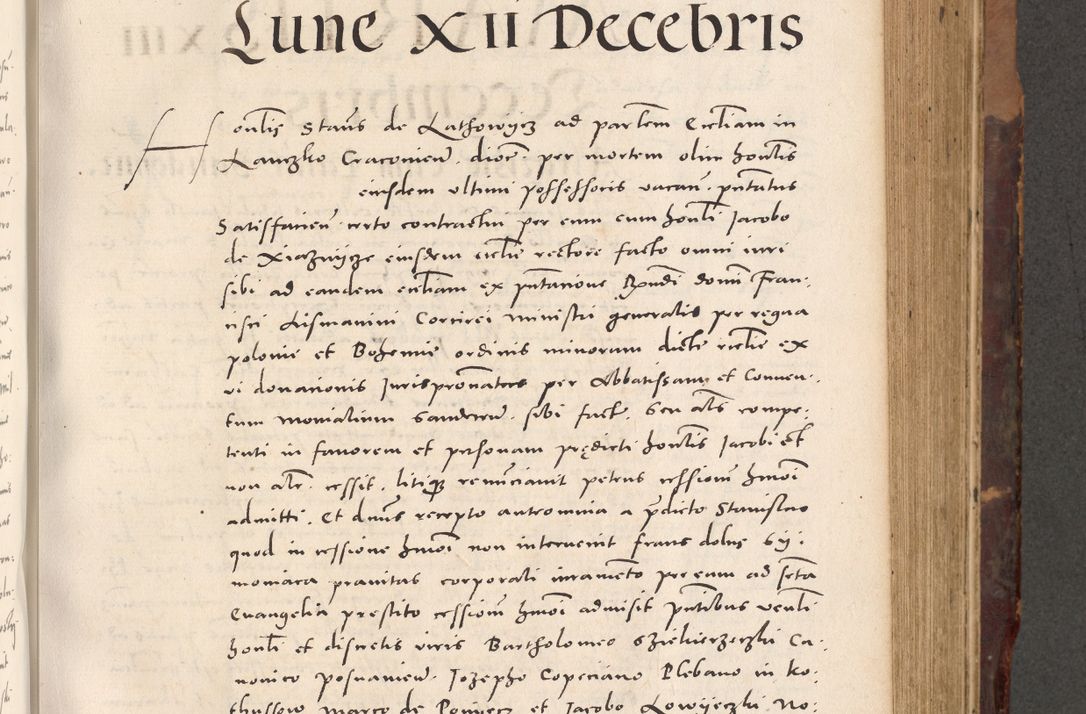 Lune XII Decebris
Honlis Stans de Lathowycz ad parlem Eccliam in
Lanczko Cracovien. dioc per mortem olim honlis
eiusdem ultimi possessoris vacan. pntatus
Satisfacien. certo contractui per eum cum honli Jacobo
de Xiaznycze eiusdem ecclie rectore facto omni iuri
sibi ad eandem eccliam ex pntacione Rndi domi Fran:
cisci Lismanini Corcirei ministri generalis per regna
polonie et Bohemie ordinis minorum dicte ecclie ex
vi donacionis Jurispronatus per Abbatissam et Conven:
tum monialium Sandecen. sibi fact. Seu als compe:
tenti in favorem et personam predicti honlis Jacobi et
non alr. cessit. litique renunciavit petens cessionem hmoi
admitti. Et dnus recepto antromnia a pdicto Stanislao
quod in cessione hmoi non intervenit fraus dolus Sy:
moniaca pravitas corporali iuramento per eum ad scta
Evangelia prestito cessionem hmoi admisit pntibus venli
honli et discretis viris Bartholomeo
Ca:
nonico posnanien. Jozepho Copeciano Plebano in Ko:
thussow Marco de et Jacobo Lowyeczki No: